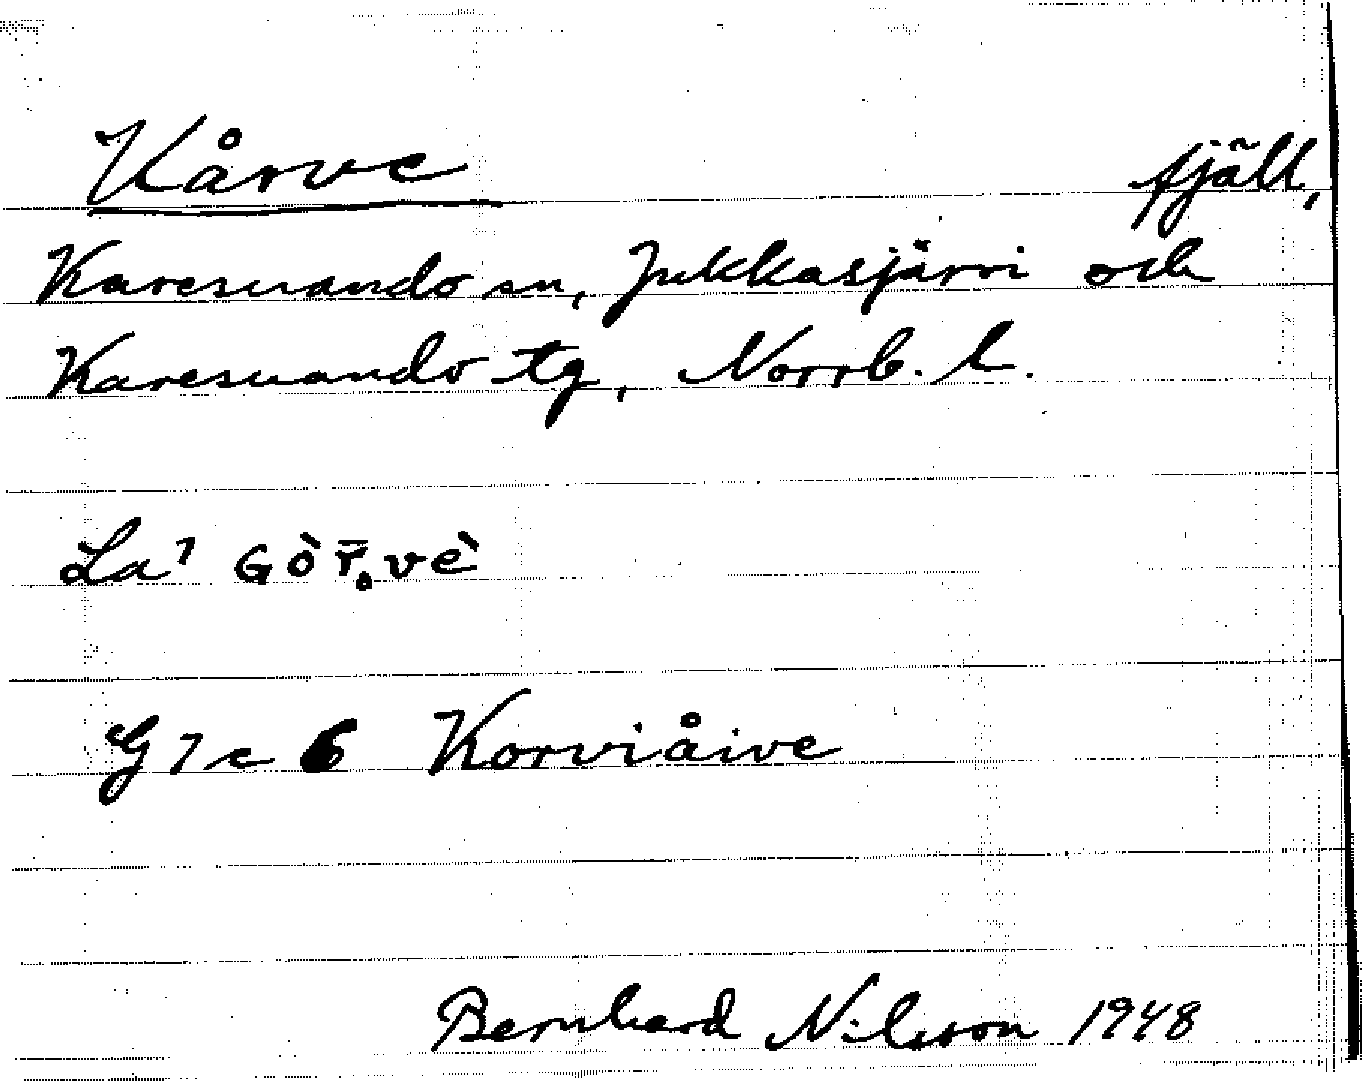 Kårve fjäll,
Karesuando sn, Jukkasjärvi och
Karesuando tg, Norrb. l.
La⁷ Gòr̥̄vè
G 7 c 6 Korviåive
Bernhard Nilsson 1948